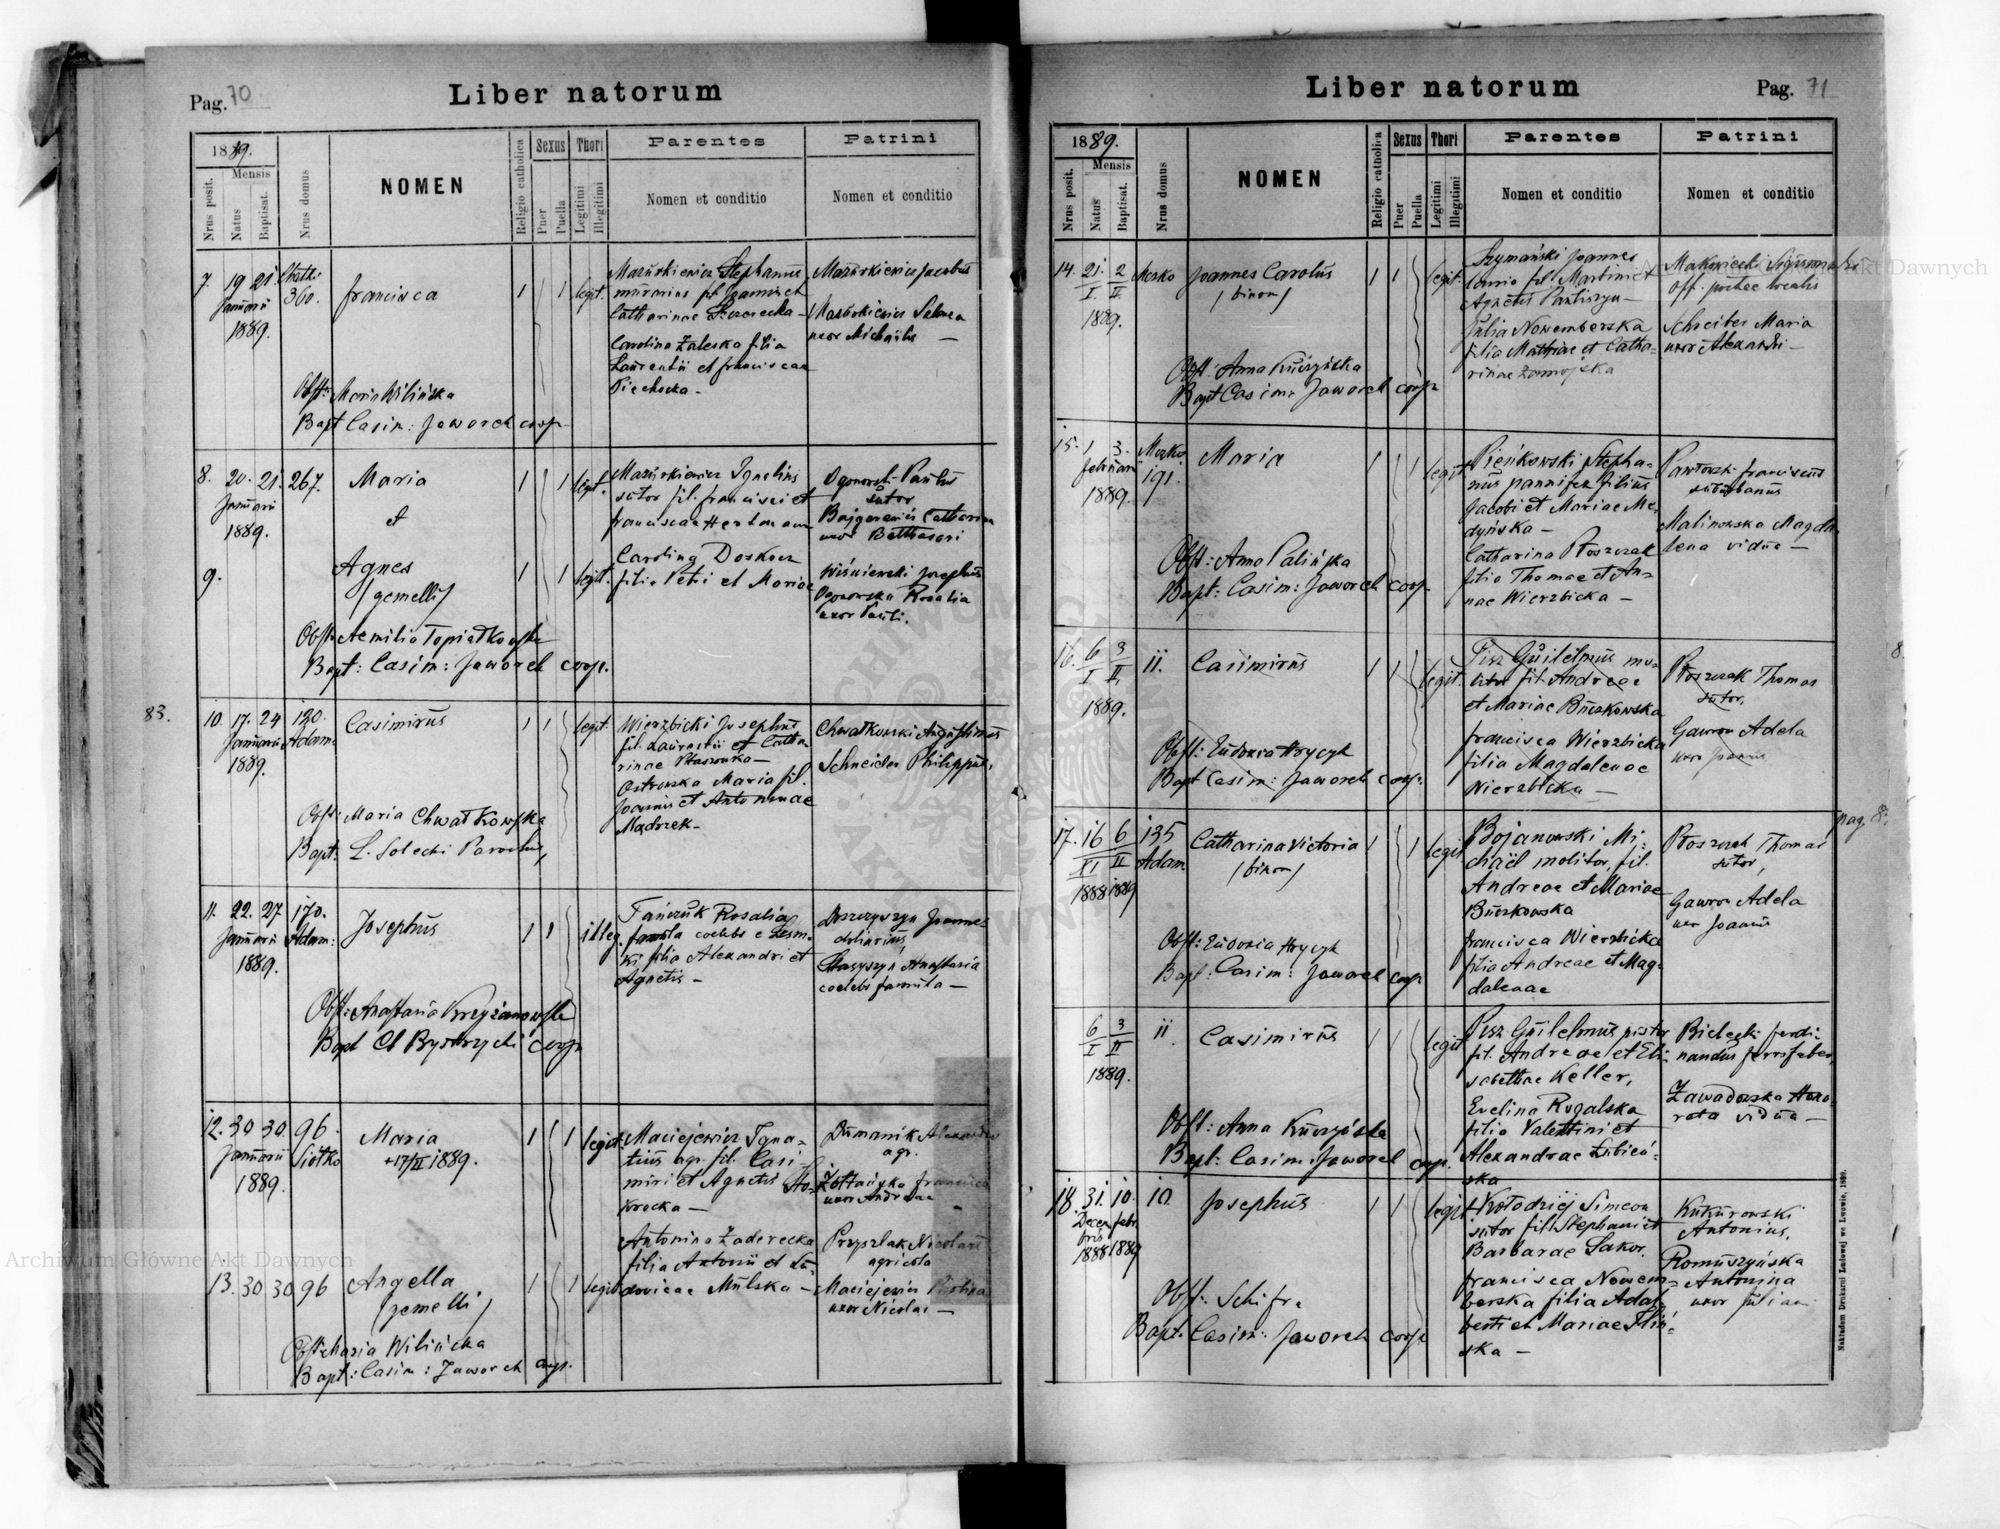 Pag. 70
Liber natorum
1889.
Mensis
Nrus posit.
Natus
Baptisat.
Nrus domus
NOMEN
Religio catholica
Sexus
Puer
Puella
Thori
Legitimi
Illegitimi
Parentes
Nomen et conditio
Patrini
Nomen et conditio
7. 19 21
Januarii
1889.
360.
Francisca
1 1 legit.
Mazurkiewicz Stephanus
murarius fil. Joannis et
Catharinae
Carolina Zaleska filia
Laurentii et Franciscae
Piechocka -
Mazurkiewicz Jacobus
Mazurkiewicz
uxor Michaelis -
Obst: Maria Wilińska
Bapt Casim: Jaworek coop.
8. 20. 21. 267.
Januarii
1889.
Maria
et
1 1 legit.
Mazurkiewicz Ignatius
sutor fil. Francisci et
Franciscae Hertmann
Ogonowski Paulus
sutor
Catharina
uxor Balthasari
9.
Agnes
(gemelli)
1 1 legit.
Carolina Doskocz
filia Petri et Mariae
Wiśniewski Josephus
Ogonowska Rosalia
uxor Pauli.
Obst: Aemilia Topiatkowska
Bapt: Casim: Jaworek coop.
83.
10. 17. 24 130.
Januarii Adam:
1889.
Casimirus
1 1 legit
Wierzbicki Josephus
fil. Laurentii et Catha-
rinae
Ostrowska Maria fil.
Joannis et Antoninae
Mądrzek -
Chwatkowski Augustinus
Schneider Philippus,
Obst: Maria Chwatkowska
Bapt: L. Solecki Parochus,
11. 22. 27 170.
Januarii Adam:
1889.
Josephus
1 1 illeg.
Tańczuk Rosalia
famula coelebs e
filia Alexandri et
Agnetis -
Doszczyszyn Joannes
doliarius,
Anastasia
coelebs famula -
Obst: Anastasia Krzyżanowska
Bapt Cl Bystrzycki coop
12. 30 30 96.
Januarii Siółko
1889.
Maria
+17/II 1889.
1 1 legit.
Maciejewicz Igna-
tius agr. fil. Casi-
miri et Agnetis
Antonina Zaderecka
filia Antonii et Lu-
dovicae Mulska -
Dumanik Alexander
agr.
Żółtańska Francisca
uxor Andreae
13. 30 30 96
Angella
(gemelli)
1 1 legit
Przyszlak Nicolaus
agricola
Maciejewicz
uxor Nicolai -
Obst: Maria Wilińska
Bapt: Casim: Jaworek coop.
Liber natorum
Pag. 71
1889.
Mensis
Nrus posit.
Natus
Baptisat.
Nrus domus
NOMEN
Religio catholica
Sexus
Puer
Puella
Thori
Legitimi
Illegitimi
Parentes
Nomen et conditio
Patrini
Nomen et conditio
14. 21. 2
I. II.
1889.
Joannes Carolus
(binom)
1 1 legit.
Szymański Joannes
fil. Martini et
Agnetis
Julia Nowemberska
filia Mathiae et Catha-
rinae Zamojska
Makowiecki
Schreiber Maria
uxor Alexandri -
Obst: Anna Kuczyńska
Bapt Casim: Jaworek coop
15. 1 3.
Februarii
1889.
191.
Maria
1 1 legit
Pieńkowski Stepha-
nus pannifex filius
Jacobi et Mariae Me-
dyńska -
Catharina Ptoszczak
filia Thomae et An-
nae Wierzbicka -
Franciscus
suburbanus
Malinowska Magda-
lena vidua -
Obst: Anna Palińska
Bapt: Casim: Jaworek coop.
16. 6 3
I II.
1889.
11.
Casimirus
1 1 legit.
Pisz Guilelmus
fil. Andreae
et Mariae Buczkowska
Francisca Wierzbicka
filia Magdalenae
Wierzbicka -
Ptoszczak Thomas
sutor,
Gawron Adela
uxor Joannis
Obst: Eudoxia Hryczk
Bapt Casim: Jaworek coop.
8.
17. 16 6 135
XI II Adam:
1888 1889
Catharina Victoria
(binom)
1 1 legit
Bojanowski Mi-
chaël molitor, fil.
Andreae et Mariae
Buczkowska
Francisca Wierzbicka
filia Andreae et Mag-
dalenae
Ptoszczak Thomas
sutor,
Gawron Adela
uxor Joannis
Obst: Eudoxia Hryczk
Bapt: Casim: Jaworek coop
6 3
I II
1889.
11
Casimirus
1 1 legit
Pisz Guilelmus pistor
fil. Andreae et Eli-
sabethae Keller,
Evelina Rogalska
filia Valentini et
Alexandrae
ska
Bielecki Ferdi-
nandus ferrifaber,
Zawadowska Hono-
rata vidua -
Obst: Anna Kuczyńska
Bapt: Casim: Jaworek coop.
18. 31. 10. 10.
Decem Febr.
bris
1888 1889
Josephus
1 1 legit
Kołodziej Simeon
sutor fil. Stephani et
Barbarae Sakor.
Francisca Nowem-
berska filia Adal-
berti et Mariae
ska -
Kukurowski
Antonius,
Romuszyńska
Antonina
uxor Juliani
Obst: Schifra
Bapt: Casim: Jaworek coop
Nakładem Drukarni Ludowej we Lwowie, 1888.
Archiwum Główne Akt Dawnych